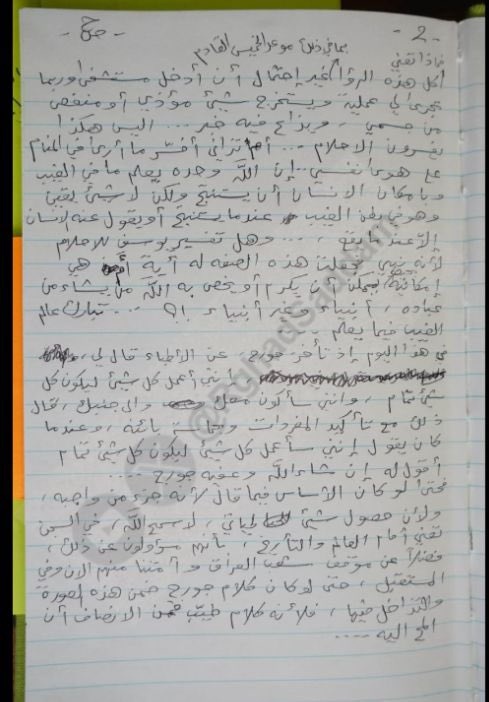 - 2 -
صح -
بما في ذلك موعد الخميس القادم
ماذا تعني
كل هذه الرؤيا غير إحتمال أن أدخل مستشفى أو ربما
تجرى لي عملية ويستخرج شيئ مؤذي أو منغص
من جسمي ، ويزاح فيه خير ... اليس هكذا
يفسرون الأحلام ... أم تراني أفسّر ما أرى في المنام
على هوى نفسي .. إن الله وحده يعلم ما في الغيب
وبإمكان الإنسان أن يستنتج ولكن لا شيئ يقين
وهو في بطن الغيب عندما يستنتج أو يقول عنه الإنسان
إلا عندما يقع ، ... وهل تفسير يوسف للأحلام
لأنه نبي جعلت هذه الصفة له آية أم هي
إمكانية يمكن أن يكرم أو يخص به الله من يشاء من
عباده ، أنبياء وغير أنبياء ؟! ... تبارك عالم
الغيب فيما يعلم ..
في هذا اليوم إذ تأخر جورج ، عن الأطباء قال لي ،
إنني أعمل كل شيئ ليكون كل
شيئ تمام ، وانني سأكون معك والى جنبك ، قال
ذلك مع تأكيد المفردات بانه ، وعندما
كان يقول إنني سأعمل كل شيئ ليكون كل شيئ تمام
أقول له إن شاء الله وعونه جورج ...
فحتى لو كان الأساس فيما قال لأنه جزء من واجبه ،
ولأن حصول شيئ لحياتي ، لا سمح الله ، في السجن
تعني أمام العالم والتأريخ ، بأنهم مسؤولون عن ذلك ،
فضلاً عن موقف شعب العراق وأمتنا منهم الآن وفي
المستقبل ، حتى لو كان كلام جورج ضمن هذه الصورة
والتداخل فيها ، فلأنه كلام طيّب فمن الإنصاف أن
إليه ....
@RghadSaddam